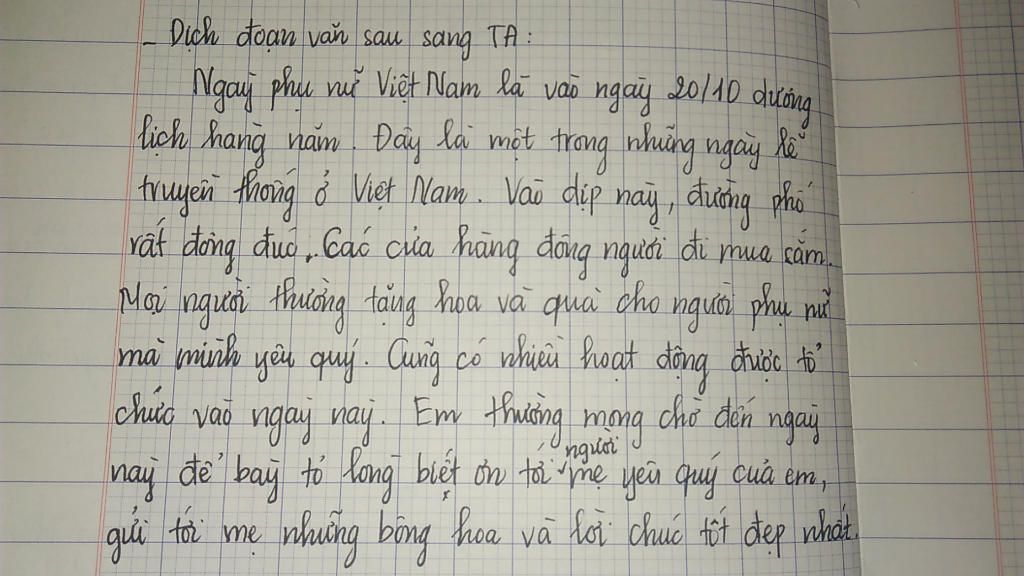 - Dịch đoạn văn sau sang TA:
Ngày phụ nữ Việt Nam là vào ngày 20/10 dương
lịch hàng năm. Đây là một trong những ngày lễ
truyền thống ở Việt Nam. Vào dịp này, đường phố
rất đông đúc. Các cửa hàng đông người đi mua sắm.
Mọi người thường tặng hoa và quà cho người phụ nữ
mà mình yêu quý. Cũng có nhiều hoạt động được tổ
chức vào ngày này. Em thường mong chờ đến ngày
này để bày tỏ lòng biết ơn tới người mẹ yêu quý của em,
gửi tới mẹ những bông hoa và lời chúc tốt đẹp nhất.